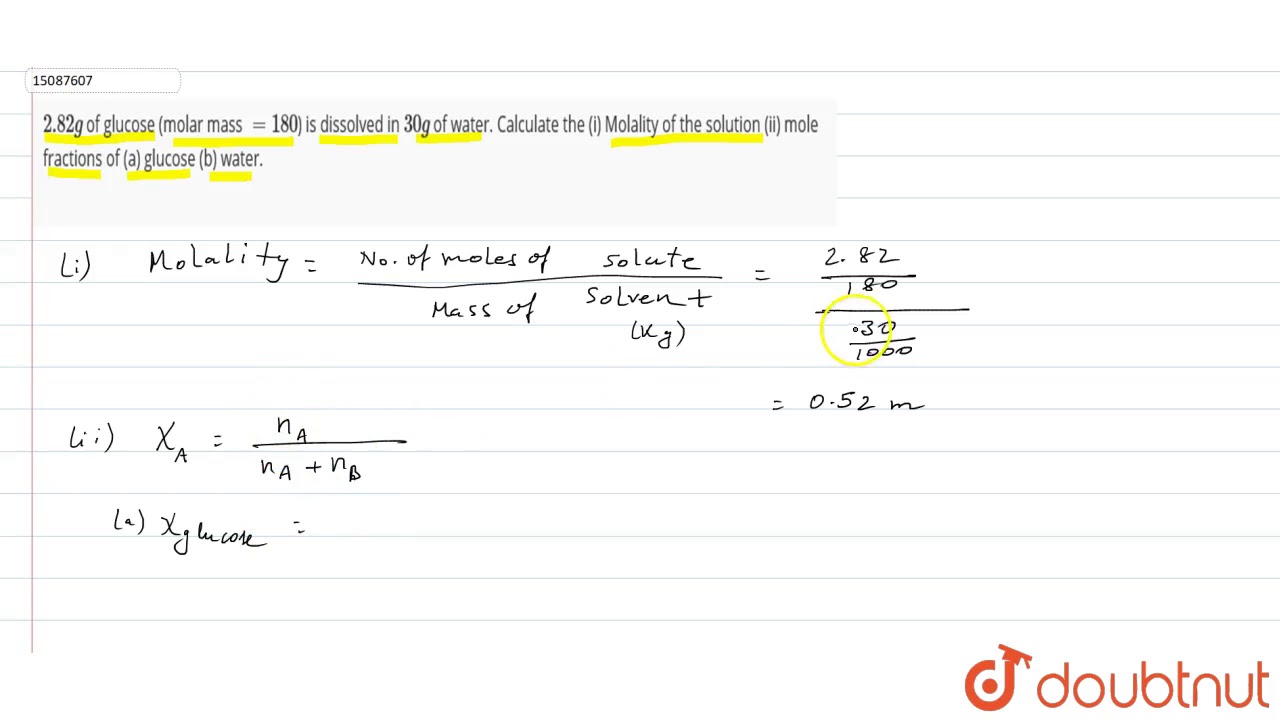 15087607
2.82g of glucose (molar mass = 180) is dissolved in 30g of water. Calculate the (i) Molality of the solution (ii) mole
fractions of (a) glucose (b) water.
(i) Molality = No. of moles of solute / Mass of solvent (Kg) = 2.82/180 / .30/1000
= 0.52 m
(ii) XA = nA / nA + nB
(a) Xglucose =
doubtnut